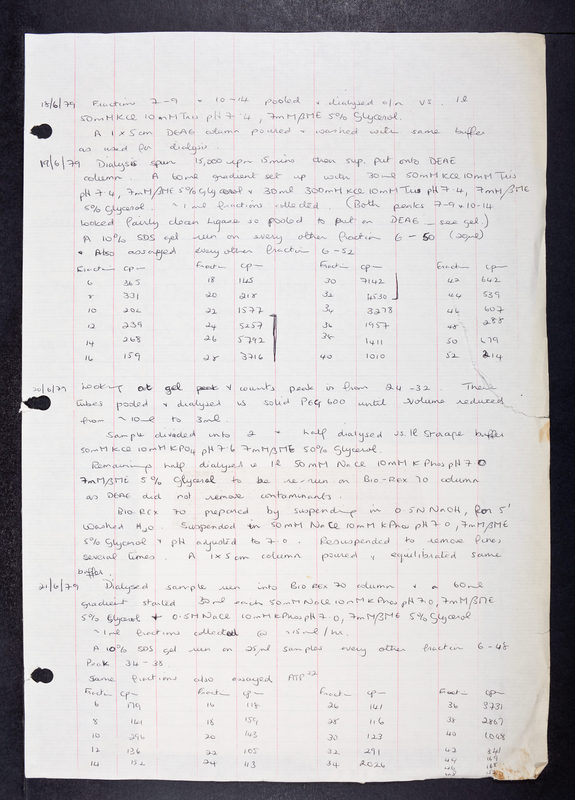 18/6/79 Fractions 7-9 + 10-14 pooled + dialysed o/n vs. 1l
50mM KCl 10mM Tris pH 7.4, 7mM βME 5% Glycerol.
A 1 x 5cm DEAE column poured + washed with same buffer
as used for dialysis.
19/6/79 Dialysis spun 15,000 rpm 15 mins then sup. put onto DEAE
column. A 60ml gradient set up with 30ml 50mM KCl 10mM Tris
pH 7.4, 7mM βME 5% Glycerol + 30ml 300mM KCl 10mM Tris pH 7.4, 7mM βME
5% Glycerol. ~1ml fractions collected. (Both peaks 7-9 + 10-14
looked fairly clean ligase so pooled to put on DEAE - see gel.)
A 10% SDS gel run on every other fraction 6-50 (25μl)
+ Also assayed every other fraction 6-52
Fraction cpm Fract cpm Fract cpm Fract cpm
6 365 18 1145 30 7142 42 642
8 331 20 218 32 4530 44 539
10 202 22 1577 34 3278 46 607
12 239 24 5257 36 1957 48 288
14 268 26 5792 38 1411 50 679
16 159 28 3716 40 1010 52 214
20/6/79 Looking at gel peak + counts peak is from 24-32 These
tubes pooled + dialysed vs solid PEG 600 until volume reduced
from ~10ml to 3ml.
Sample divided into 2 + half dialysed vs. 1l Storage buffer
50mM KCl 10mM KPO4 pH 7.6 7mM βME 50% Glycerol.
Remaining half dialysed vs 1l 50mM NaCl 10mM K Phos pH 7.0
7mM βME 5% Glycerol to be re-run on Bio-Rex 70 column
as DEAE did not remove contaminants.
Bio-Rex 70 prepared by suspending in 0.5N NaOH, for 5'
Washed H2O. Suspended in 50mM NaCl 10mM K Phos pH 7.0, 7mM βME
5% Glycerol + pH adjusted to 7.0. Resuspended to remove fines
several times. A 1 x 5cm column poured + equilibrated same
buffer.
21/6/79 Dialysed sample run into Bio Rex 70 column + a 60ml
gradient started 30ml each 50mM NaCl 10mM K Phos pH 7.0, 7mM βME
5% Glycerol + 0.5M NaCl 10mM K Phos pH 7.0, 7mM βME 5% Glycerol
~1ml fractions collected @ ~15ml/hr.
A 10% SDS gel run on 25μl samples every other fraction 6-48
Peak 34-38.
Same fractions also assayed ATP 32
Fract cpm Fract cpm Fract cpm Fract cpm
6 179 16 118 26 141 36 3731
8 141 18 159 28 116 38 2867
10 296 20 143 30 123 40 1048
12 136 22 105 32 291 42 341
14 152 24 113 34 2026 44 169
46 168
48